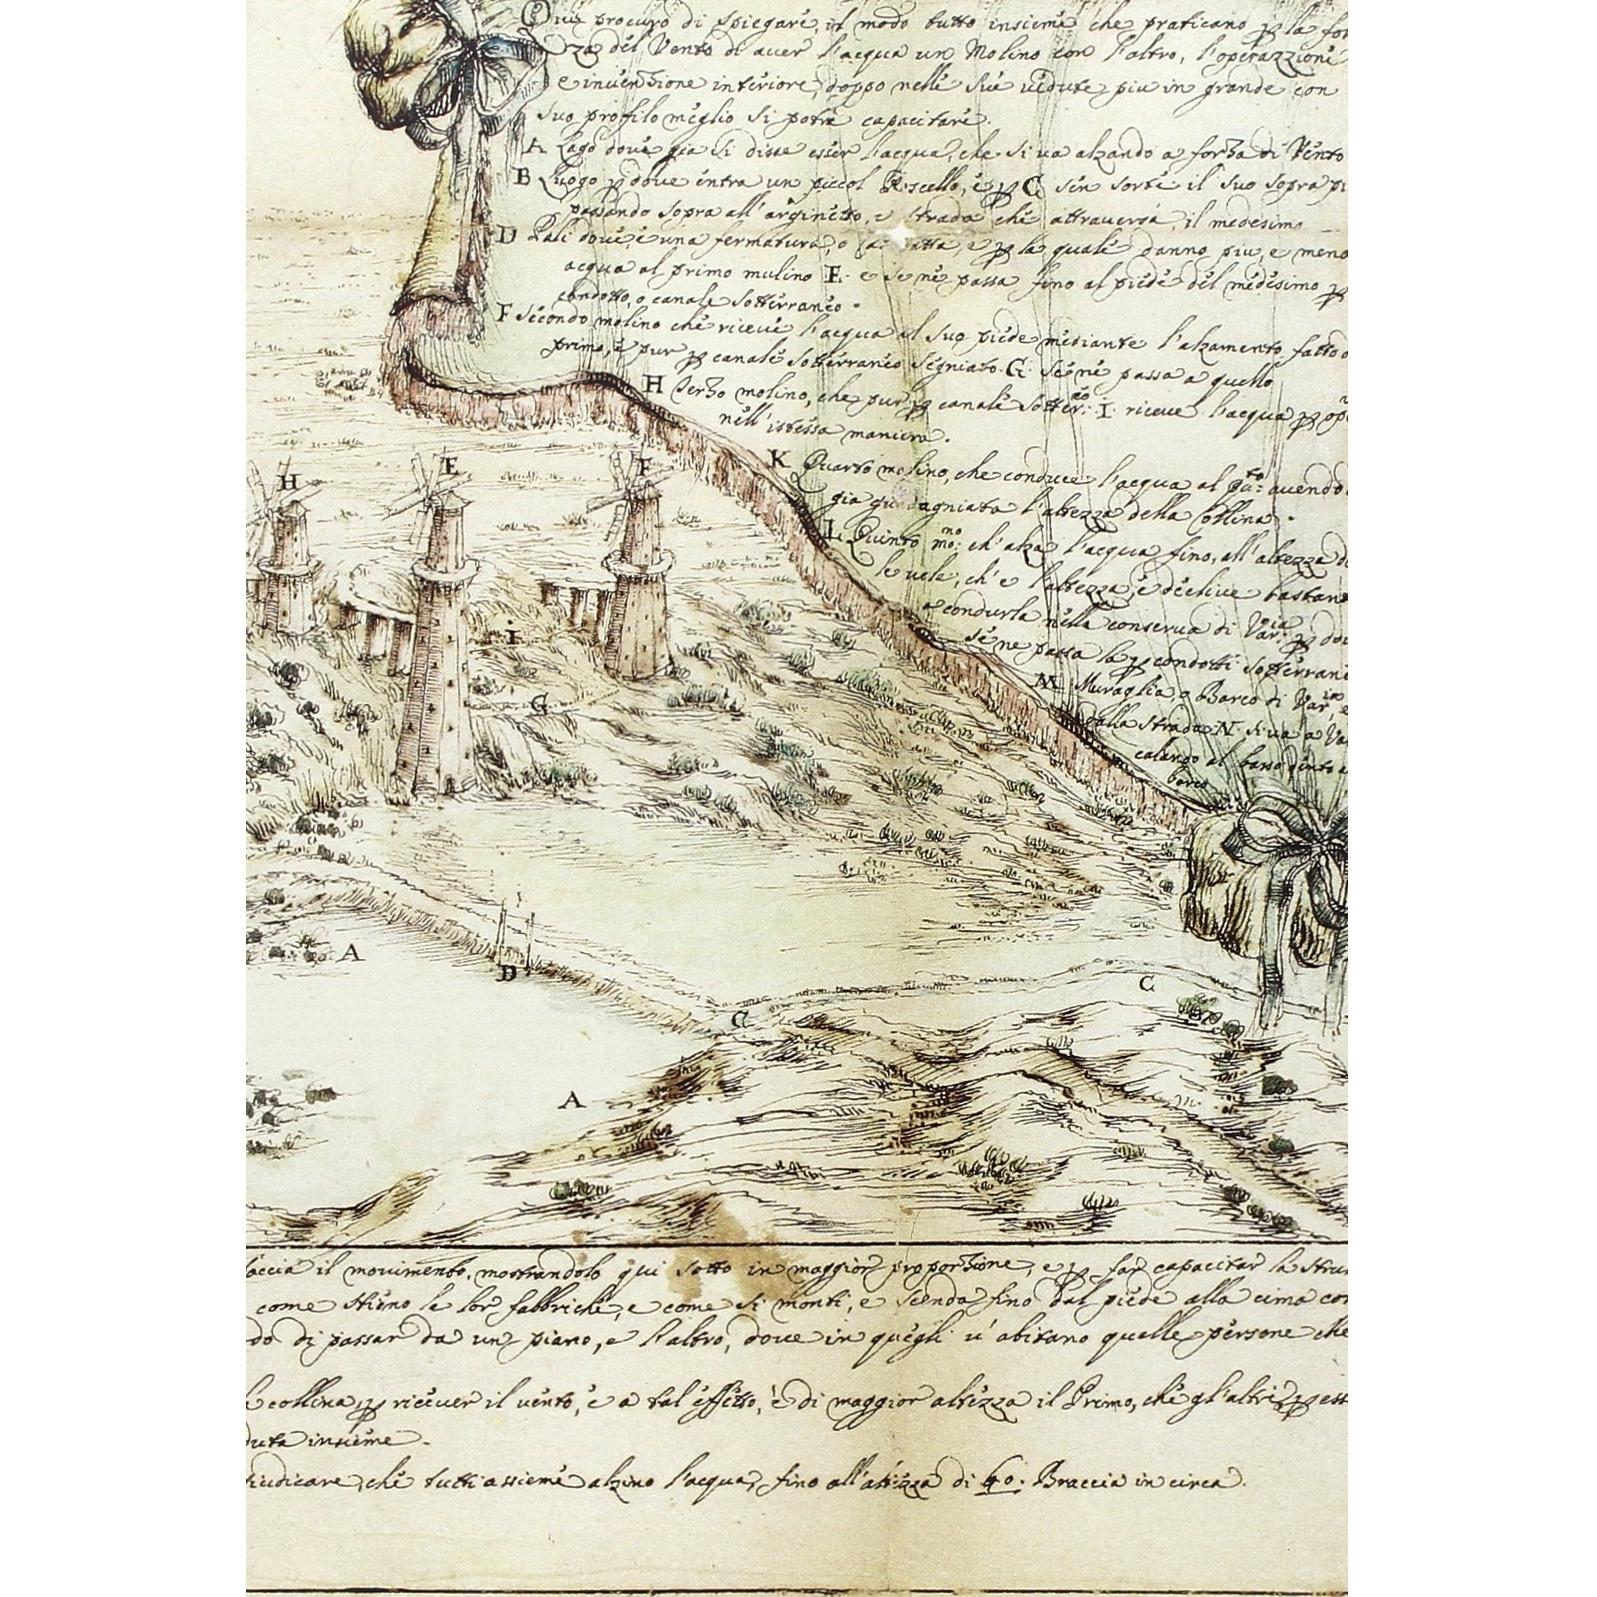 Qui procuro di spiegare, il modo tutto insieme che praticano p la for
za del Vento di aver l'acqua un Molino con l'altro, l'operazzione
e invenzione interiore, doppo nelle sue vedute piu in grande con
suo profilo meglio si potrà capacitare.
A Lago dove gia si disse esser l'acqua, che si va alzando a forza di Vento
B Luogo p dove entra un piccol Ruscello, e p C sen sorte il suo sopra pi
passando sopra all'arginetto, e strada che attraversa il medesimo
D Pali dove è una fermatura, o, e p la quale danno piu, e meno
acqua al primo mulino E: e se ne passa fino al piede del medesimo p
condotto, o canale sotterraneo.
F Secondo molino che riceve l'acqua al suo piede mediante l'alzamento fatto
primo, e pur p canale sotterraneo segniato. G. se ne passa a quello
H Terzo molino, che pur p canale sotter:eo I. riceve l'acqua p
nell'istessa maniera.
K Quarto molino, che conduce l'acqua al Qu:to avendo
gia guadagniata l'altezza della Collina.
L Quinto mo:mo ch'alza l'acqua fino, all'altezza d
le vele, ch'e l'altezza e declive bastan
a condurla nella conserva di Var:ia p do
se ne passa la p condotti sotterrani
M Muraglia, o Barco di Var:ia e
dalla strada N. si va a Va
calando al basso
barco
H
E
F
i
G
A
D
C
C
A
faccia il movimento, mostrandolo qui sotto in maggior proporzione, e p far capacitar la stru
come stieno le lor fabbriche, e come si monti, e scenda fino dal piede alla cima co
do di passar da un piano, e l'altro, dove in quegli v'abitano quelle persone che
collina p ricever il vento, e a tal effetto, è di maggior altezza il Primo, che gl'altri p ess
duta insieme.
iudicare, che tutti assieme alzino l'acqua, fino all'altezza di 40. Braccia in circa.